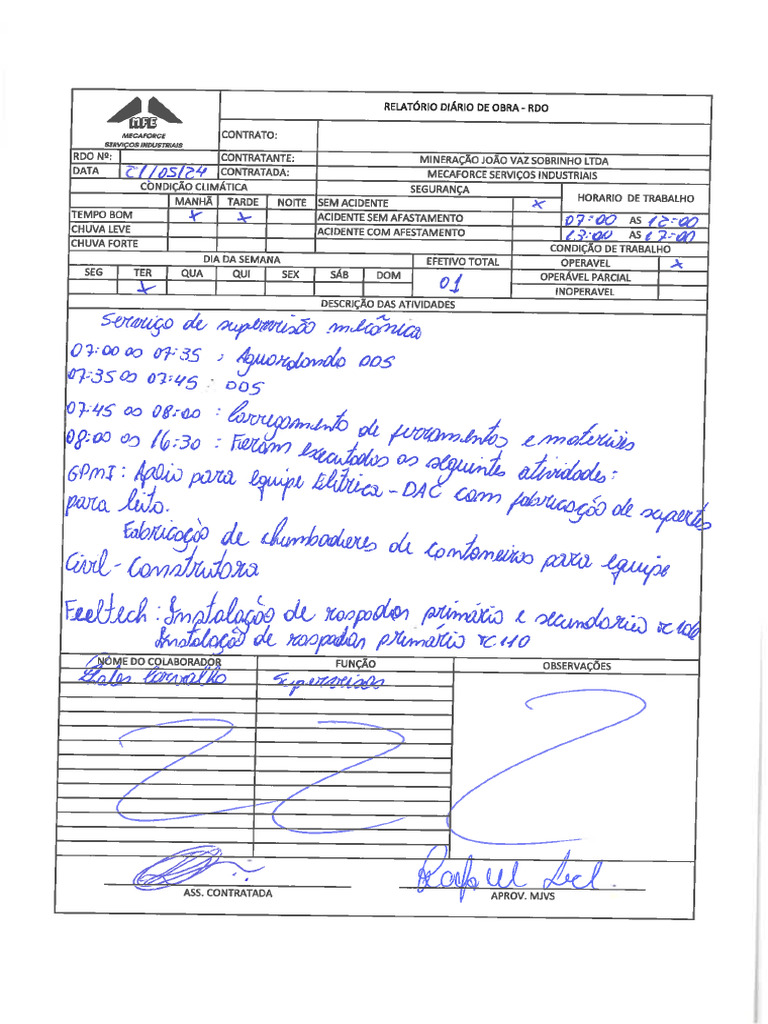 RELATÓRIO DIÁRIO DE OBRA - RDO
MFE
MECAFORCE
SERVIÇOS INDUSTRIAIS
CONTRATO:
RDO Nº:
CONTRATANTE: MINERAÇÃO JOÃO VAZ SOBRINHO LTDA
DATA 21/05/24 CONTRATADA: MECAFORCE SERVIÇOS INDUSTRIAIS
CONDIÇÃO CLIMÁTICA SEGURANÇA HORARIO DE TRABALHO
MANHÃ TARDE NOITE SEM ACIDENTE x
TEMPO BOM x x ACIDENTE SEM AFASTAMENTO 07:00 AS 12:00
CHUVA LEVE ACIDENTE COM AFESTAMENTO 13:00 AS 17:00
CHUVA FORTE CONDIÇÃO DE TRABALHO
DIA DA SEMANA EFETIVO TOTAL OPERAVEL x
SEG TER QUA QUI SEX SÁB DOM 01 OPERÁVEL PARCIAL
x INOPERAVEL
DESCRIÇÃO DAS ATIVIDADES
Serviço de supervisão mecânica
07:00 as 07:35 : Aguardando DDS
07:35 as 07:45 : DDS
07:45 as 08:00 : Carregamento de ferramentas e materiais
08:00 as 16:30 : Fieram executados as seguintes atividades:
GPMI : Apoio para equipe Elétrica - DAC com fabricação de suportes
para leito.
Fabricação de chumbadores de contaneiros para equipe
Civil - Construtora
Feeltech : Instalação de raspador primário e secundario TC 106
Instalação de raspador primário TC 110
NOME DO COLABORADOR FUNÇÃO OBSERVAÇÕES
Carvalho Supervisor
ASS. CONTRATADA
APROV. MJVS